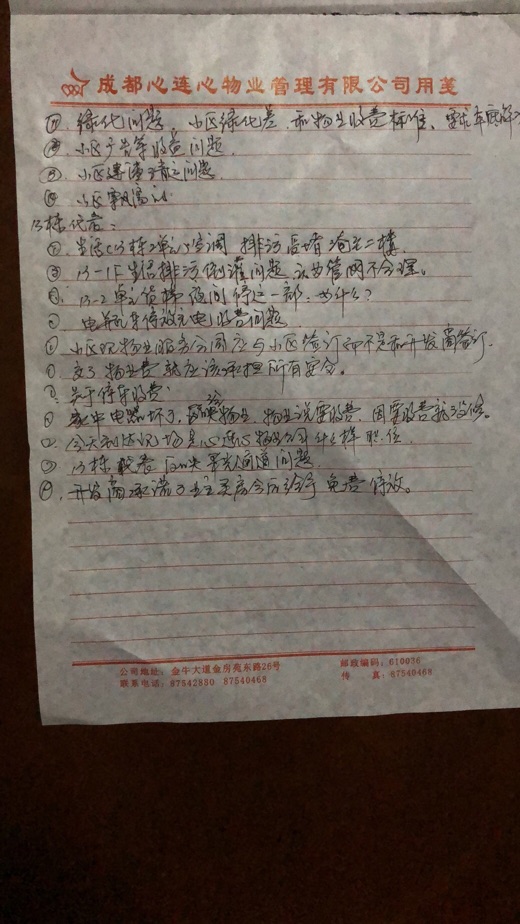 成都心连心物业管理有限公司用笺
绿化问题、小区绿化差、和物业收费标准、
④ 小区广告等收益问题.
③ 小区违法 问题.
④ 小区
13栋代表:
① 生活 13栋2单元 空调 排污 堵 二楼.
② 13-1F 生活排污倒灌问题 认为管网不合理。
③ 13-2单元货梯夜间停运一部.为什么?
电瓶车停放充电收费问题
小区现物业服务合同应与小区签订而不是和开发商签订.
交了物业费就应该承担所有安全。
关于停车收费
家中电器坏了, 物业,物业说要收费,因要收费就没修。
今天到达现场是心连心物业公司什么样职位.
13栋 问题.
④ 开发商承诺了业主买房 免费停放。
公司地址: 金牛大道金房苑东路26号
邮政编码: 610036
联系电话: 87542880 87540468
传 真: 87540468